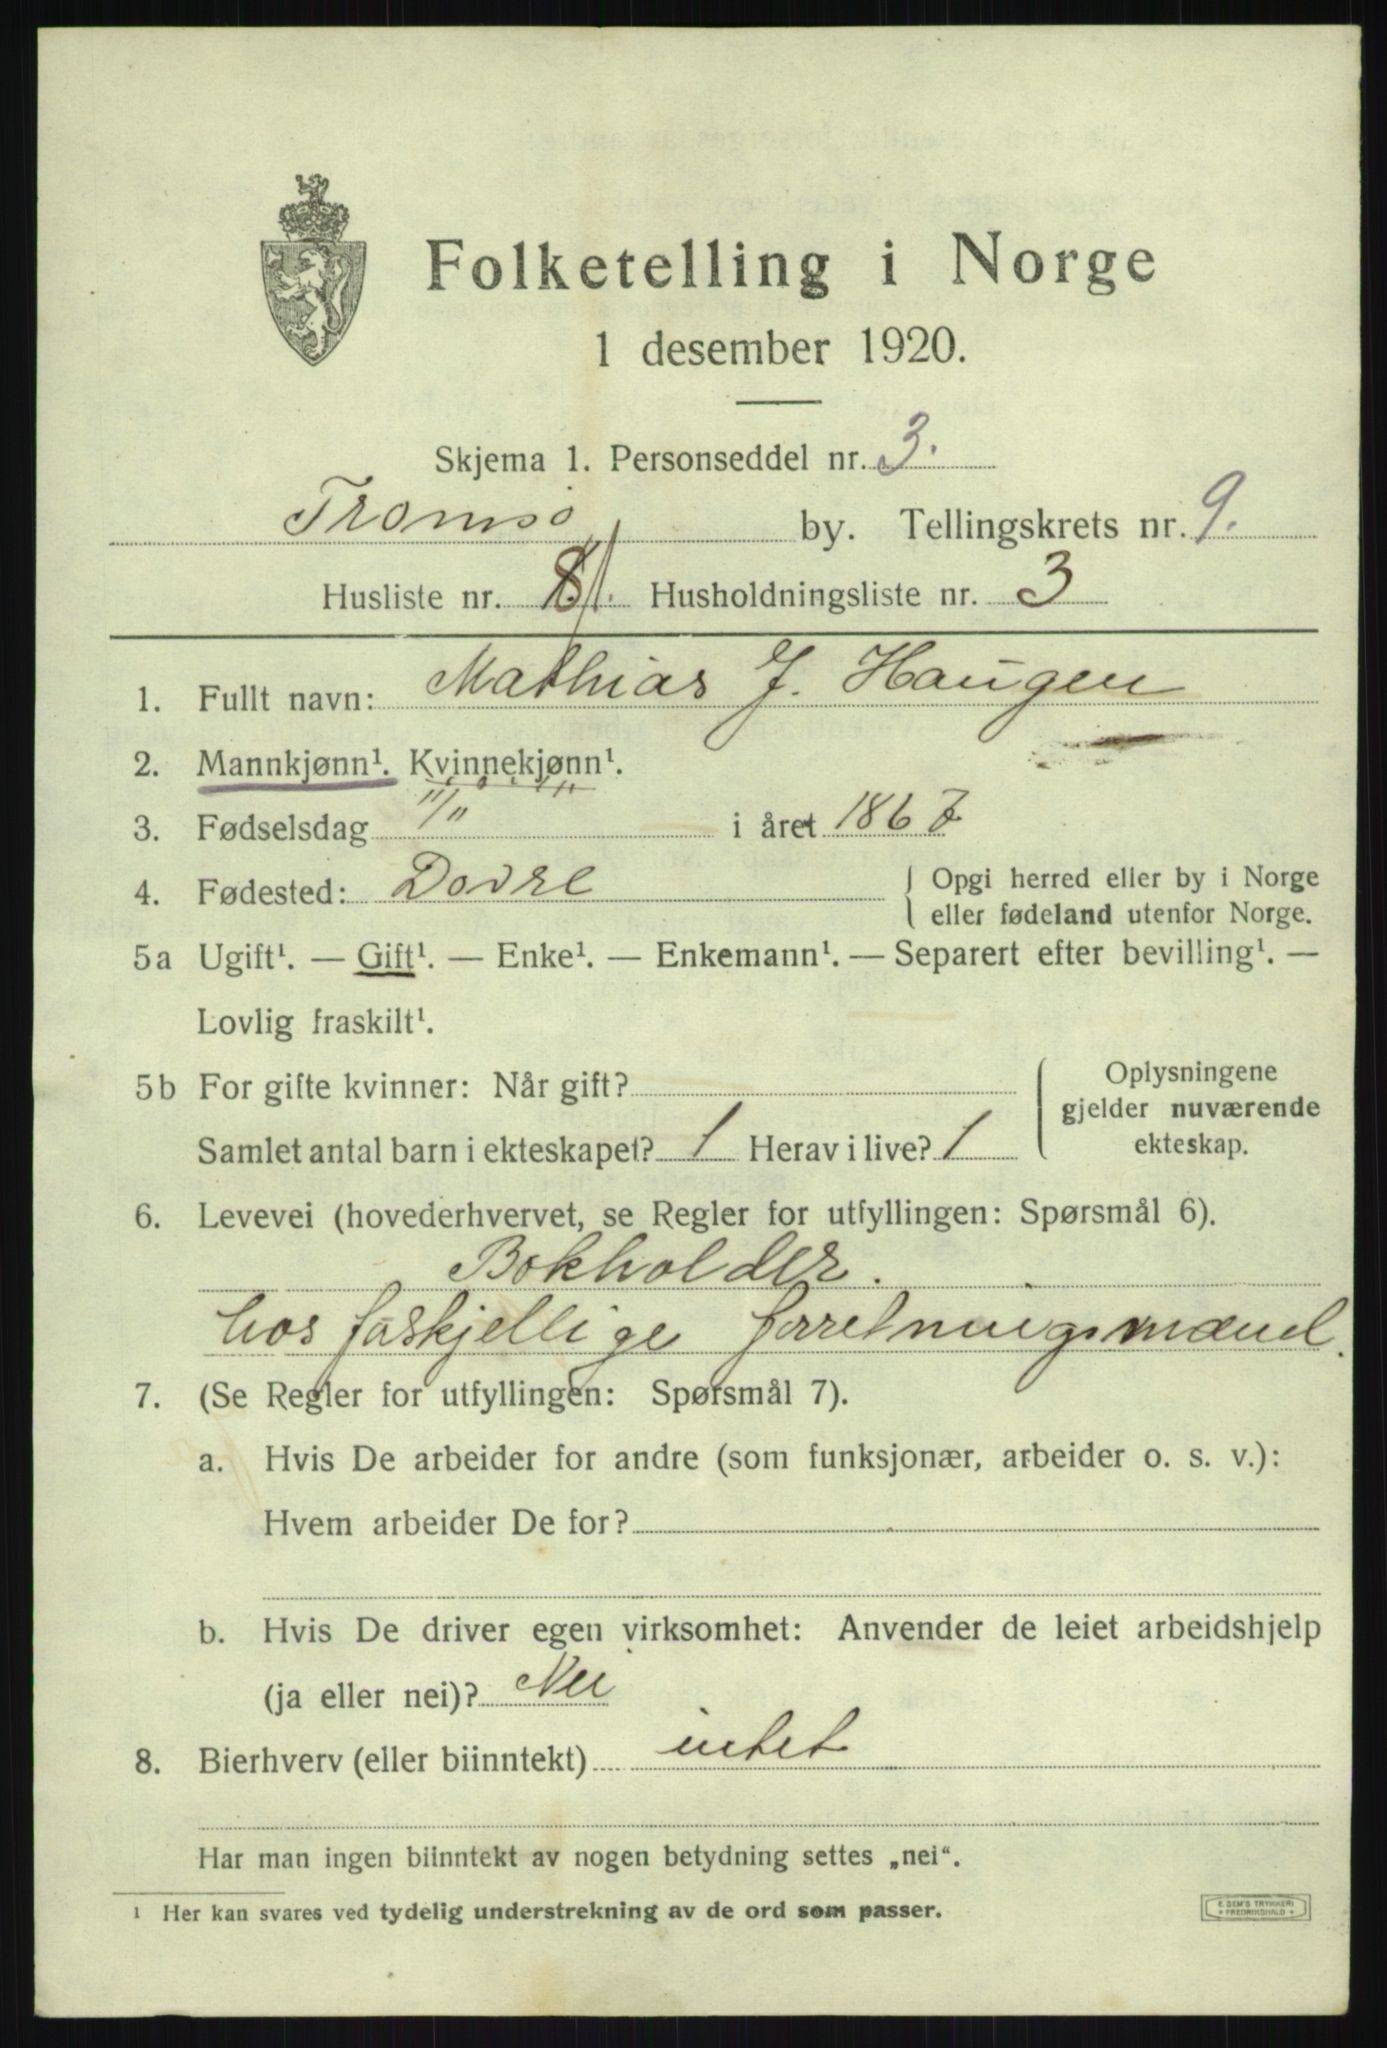 Folketelling i Norge
1 desember 1920.
Skjema 1. Personseddel nr. 3.
Tromsø by. Tellingskrets nr. 9.
Husliste nr. Husholdningsliste nr. 3
1. Fullt navn: Mathias J. Haugen
2. Mannkjønn¹. Kvinnekjønn¹.
3. Fødselsdag 11/11 i året 1867
4. Fødested: Dovre
Opgi herred eller by i Norge
eller fødeland utenfor Norge.
5a Ugift¹. — Gift¹. — Enke¹. — Enkemann¹. — Separert efter bevilling¹. —
Lovlig fraskilt¹.
5b For gifte kvinner: Når gift?
Samlet antal barn i ekteskapet? 1 Herav i live? 1
Oplysningene
gjelder nuværende
ekteskap.
6. Levevei (hovederhvervet, se Regler for utfyllingen: Spørsmål 6).
Bokholder.
hos forskjellige forretningsmænd.
7. (Se Regler for utfyllingen: Spørsmål 7).
a. Hvis De arbeider for andre (som funksjonær, arbeider o. s. v.):
Hvem arbeider De for?
b. Hvis De driver egen virksomhet: Anvender de leiet arbeidshjelp
(ja eller nei)? Nei
8. Bierhverv (eller biinntekt) intet
Har man ingen biinntekt av nogen betydning settes „nei“.
1 Her kan svares ved tydelig understrekning av de ord som passer.
E. SEM'S TRYKKERI
* FREDRIKSHALD *